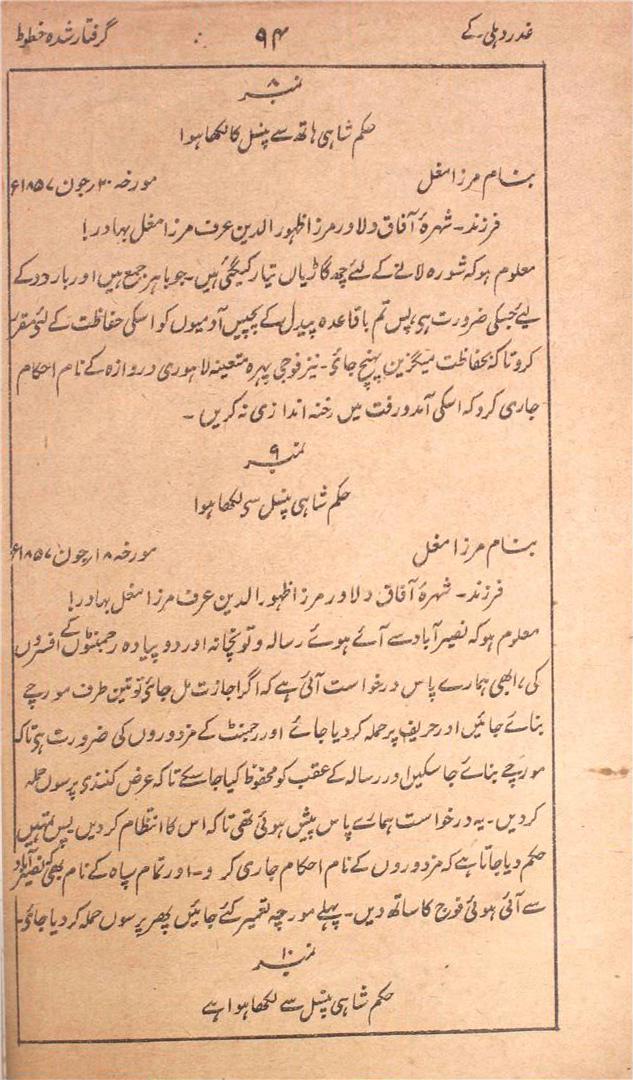 غدر دہلی کے ۹۴ گرفتار شدہ خطوط
نمبر ۸
حکم شاہی ہاتھ سے پنسل کا لکھا ہوا
بنام مرزا مغل مورخہ ۳۰ رجون ۱۸۵۷ء
فرزند۔ شہرۂ آفاق دلاور مرزا ظہور الدین عرف مرزا مغل بہادر!
معلوم ہو کہ شورہ لانے کے لئے چھ گاڑیاں تیار کیگئی ہیں۔ جو باہر جمع ہیں اور بارود کے
لیے جسکی ضرورت ہی، پس تم باقاعدہ پیدل کے پچیس آدمیوں کو اسکی حفاظت کے لئے مقرر
کرو تاکہ بحفاظت میگزین پہنچ جائی۔ نیز فوجی پہرہ متعینہ لاہوری دروازہ کے نام احکام
جاری کردو کہ اسکی آمدورفت میں رخنہ اندازی نہ کریں۔
نمبر ۹
حکم شاہی پنسل سی لکھا ہوا
بنام مرزا مغل مورخہ ۱۸ رجون ۱۸۵۷ء
فرزند۔ شہرۂ آفاق دلاور مرزا ظہور الدین عرف مرزا مغل بہادر!
معلوم ہو کہ نصیر آباد سے آئے ہوئے رسالہ و توپخانہ اور دو پیادہ رجمنٹوں کے افسروں
کی ابھی ہمارے پاس درخواست آئی ہے کہ اگر اجازت مل جائی تو تین طرف مورچے
بنائے جائیں اور حریف پر حملہ کر دیا جائے اور رجمنٹ کے مزدوروں کی ضرورت ہی تاکہ
مورچے بنائے جا سکیں اور رسالہ کے عقب کو محفوظ کیا جا سکے تاکہ عرض کنندی پرسوں حملہ
کر دیں۔ یہ درخواست ہمارے پاس پیش ہوئی تھی تاکہ اس کا انتظام کر دیں پس تمہیں
حکم دیا جاتا ہے کہ مزدوروں کے نام احکام جاری کرو۔ اور تمام سپاہ کے نام بھی کہ نصیر آباد
سے آئی ہوئی فوج کا ساتھ دیں۔ پہلے مورچہ تعمیر کئے جائیں پھر پرسوں حملہ کر دیا جائی۔
نمبر ۱۰
حکم شاہی پنسل سے لکھا ہوا ہے